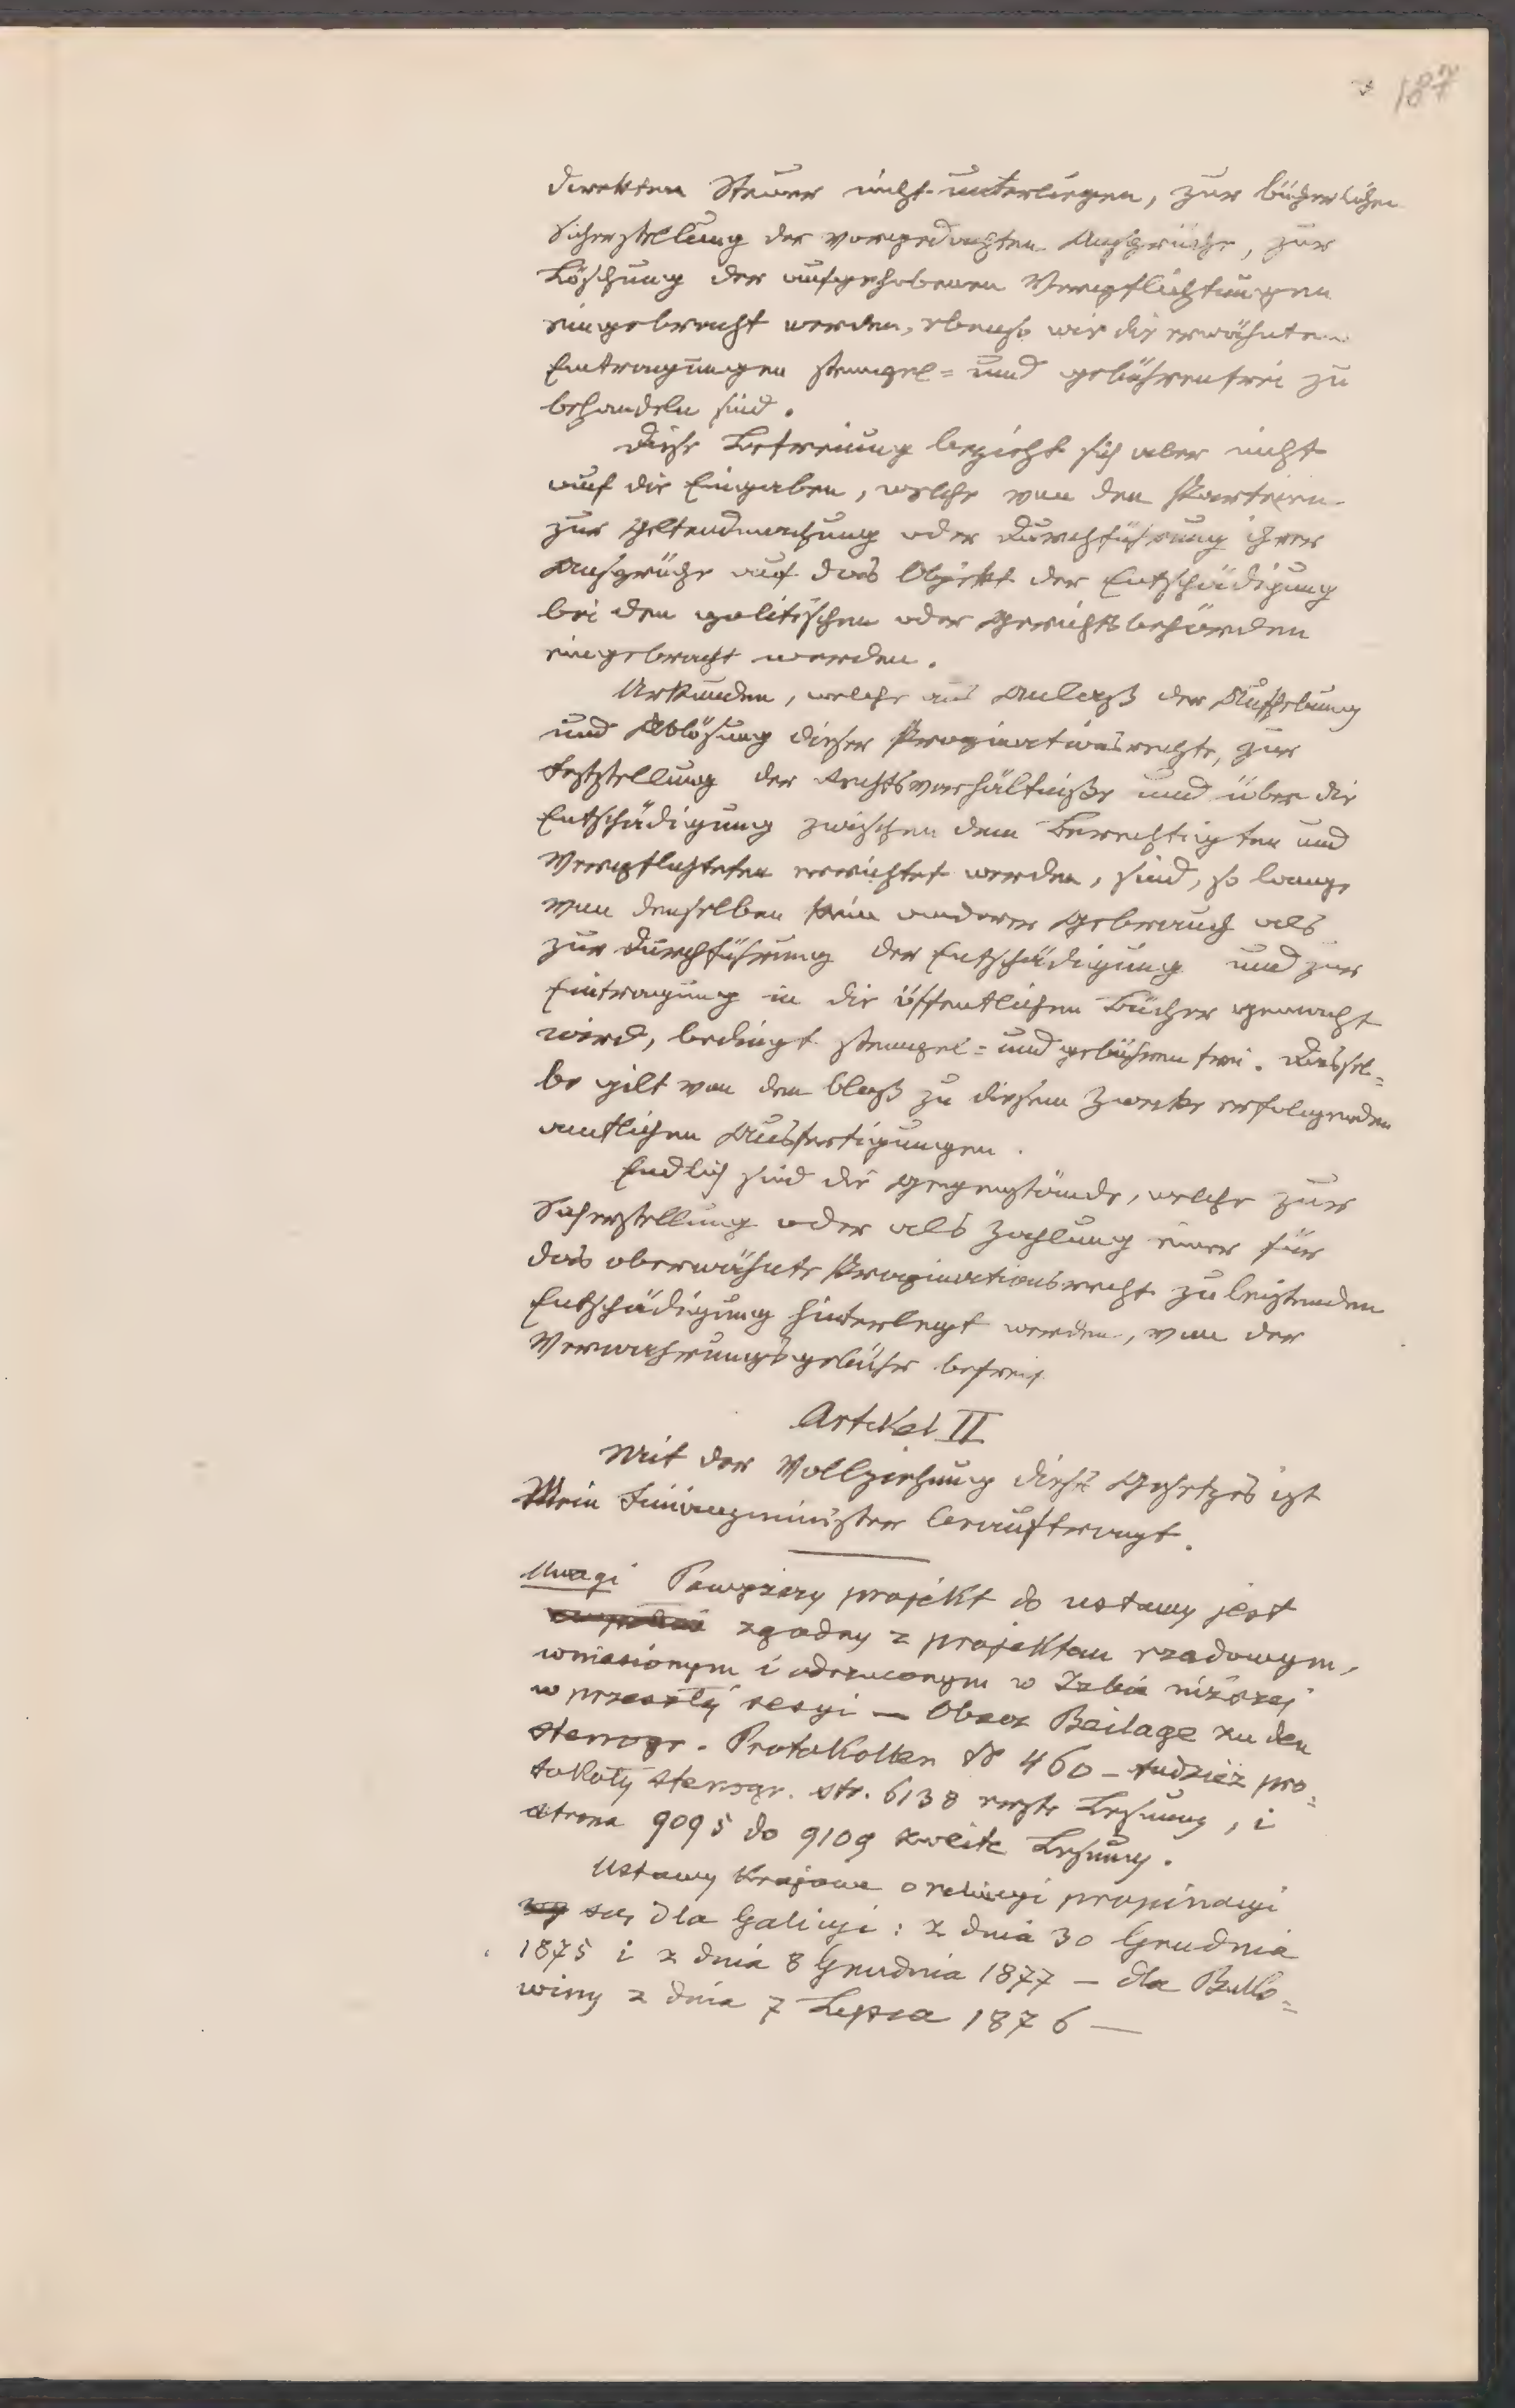 187
direkten Steuer nicht unterliegen, zur bücherlichen
Sicherstellung der vorgedachten Ansprüche, zur
Löschung der aufgehobenen Verpflichtungen
eingebracht werden, ebenso wie die erwähnten
Eintragungen stempel= und gebührenfrei zu
behandeln sind.
Diese Befreiung bezieht sich aber nicht
auf die Eingaben, welche von den Parteien
zur Geltendmachung oder Durchführung ihrer
Ansprüche auf das Objekt der Entschädigung
bei den politischen oder Gerichtsbehörden
eingebracht werden.
Urkunden, welche aus Anlaß der Aufhebung
und Ablösung dieser Propinationsrechte, zur
Feststellung der Rechtsverhältniße und über die
Entschädigung zwischen dem Berechtigten und
Verpflichteten errichtet werden, sind, so lange
von denselben kein anderer Gebrauch als
zur Durchführung der Entschädigung und zur
Eintragung in die öffentlichen Bücher gemacht
wird, bedingt stempel= und gebührenfrei. Dassel=
be gilt von den bloß zu diesem Zwecke erfolgenden
amtlichen Ausfertigungen.
Endlich sind die Gegenstände, welche zur
Sicherstellung oder als Zahlung einer für
das oberwähnte Propinationsrecht zu leistenden
Entschädigung hinterlegt werden, von der
Verwahrungsgebühr befreit
Artikel II
Mit der Vollziehung dieses Gesetzes ist
Mein Finanzminister beauftragt.
Uwagi Powyższy projekt do ustawy jest
zgodny z projektem rządowym,
wniesionym i odrzuconym w Izbie niższej
w przeszłej sesyi — Obacz Beilage zu den
stenogr. Protokollen № 460 – tudzież pro=
tokoły stenogr. str. 6138 erste Lesung, i
strona 9095 do 9109 zweite Lesung.
Ustawy krajowe o relucyi propinacyi
są dla Galicyi: z dnia 30 Grudnia
1875 i z dnia 8 Grudnia 1877 — dla Buko=
winy z dnia 7 Lipca 1876 —